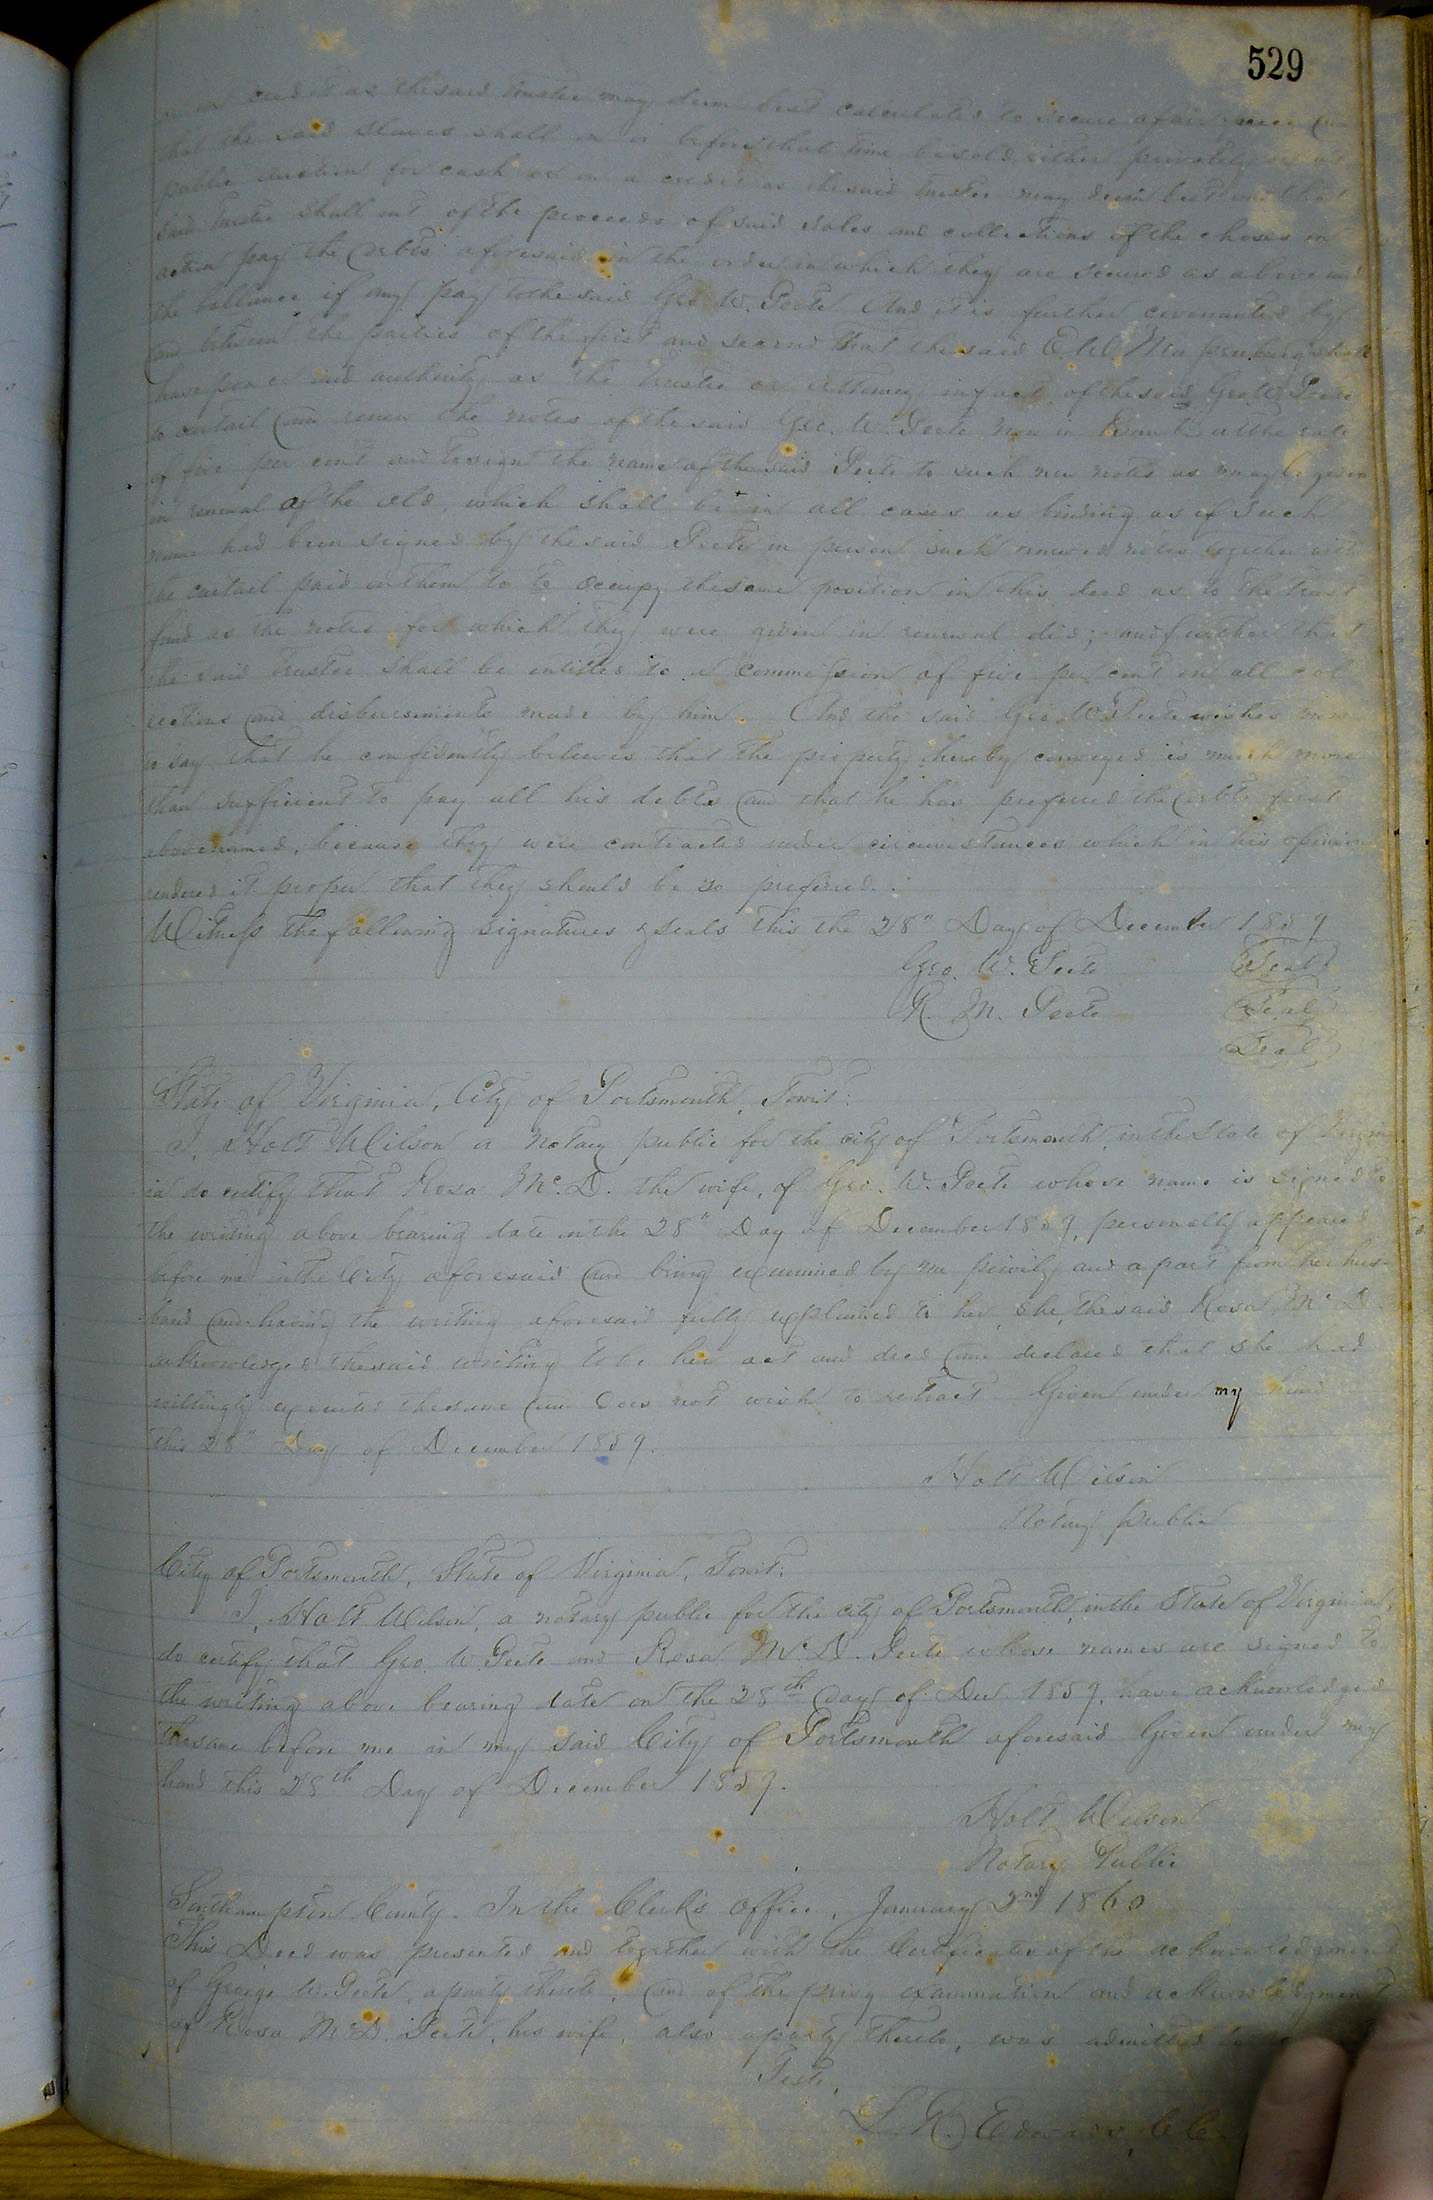 529
credit as the said trustee may deem best calculated to secure a fair price and
that the said slaves shall on or before that time be sold either privately or at
public auction for cash or on a credit as the said trustee may deem best and that
said trustee shall out of the proceeds of said sales and collections of the choses in
action pay the debts aforesaid in the order in which they are secured as above and
the ballance if any pay to the said Geo. W. Peete And it is further covenanted by
and between the parties of the first and second that the said E. W. shall
have power and authority as the trustee or attorney in fact of the said Geo W Peete
to curtail and renew the notes of the said Geo. W. Peete now in Bank at the rate
of five per cent and to sign the name of the said Peete to such new notes as may be given
in renewal of the old, which shall be in all cases as binding as if such
name had been signed by the said Peete in person such renewed notes together with
the curtail paid on them to to occupy the same position in this deed as to the trust
fund as the notes for which they were given in renewal did; and further that
the said trustee shall be entitled to a commission of five per cent on all col
lections and disbursements made by him. And the said Geo. W. Peete wishes
to say that he confidently believes that the property hereby conveyed is much more
than sufficient to pay all his debts and that he has preferred the debts first
above named, because they were contracted under circumstances which in his opinion
rendered it proper that they should be so preferred.
Witness the following signatures & seals this the 28" Day of December 1859
Geo. W. Peete (Seal)
R. M. Peete (Seal)
(Seal)
State of Virginia, City of Portsmouth, Towit:
I, Holt Wilson a notary public for the city of Portsmouth in the State of Virgin-
ia do certify that Rosa Mc. D. the wife, of Geo. W. Peete whose name is signed to
the writing above bearing date on the 28" Day of December 1859, personally appeared
before me in the City aforesaid and being examined by me privily and apart from her hus-
band and having the writing aforesaid fully explained to her, she, the said Rosa Mc D.
acknowledged the said writing to be her act and deed and declared that she had
willingly executed the same and does not wish to retract. Given under my hand
this 28" Day of December 1859.
Holt Wilson
Notary public
City of Portsmouth, State of Virginia, Towit:
I, Holt Wilson, a notary public for the city of Portsmouth, in the State of Virginia,
do certify that Geo. W. Peete and Rosa Mc. D. Peete whose names are signed to
the writing above bearing date on the 28th day of Dec 1859, have acknowledged
the same before me in my said City of Portsmouth aforesaid Given under my
hand this 28th Day of December 1859.
Holt Wilson
Notary Public
Southampton County. In the Clerk's office, January 2nd 1860
This Deed was presented and together with the Certificates of the acknowledgment
of George W. Peete, a party thereto, and of the privy examination and acknowledgment
of Rosa McD. Peete, his wife, also a party thereto, was admitted to
Teste,
L. R. Edwards, C. C.